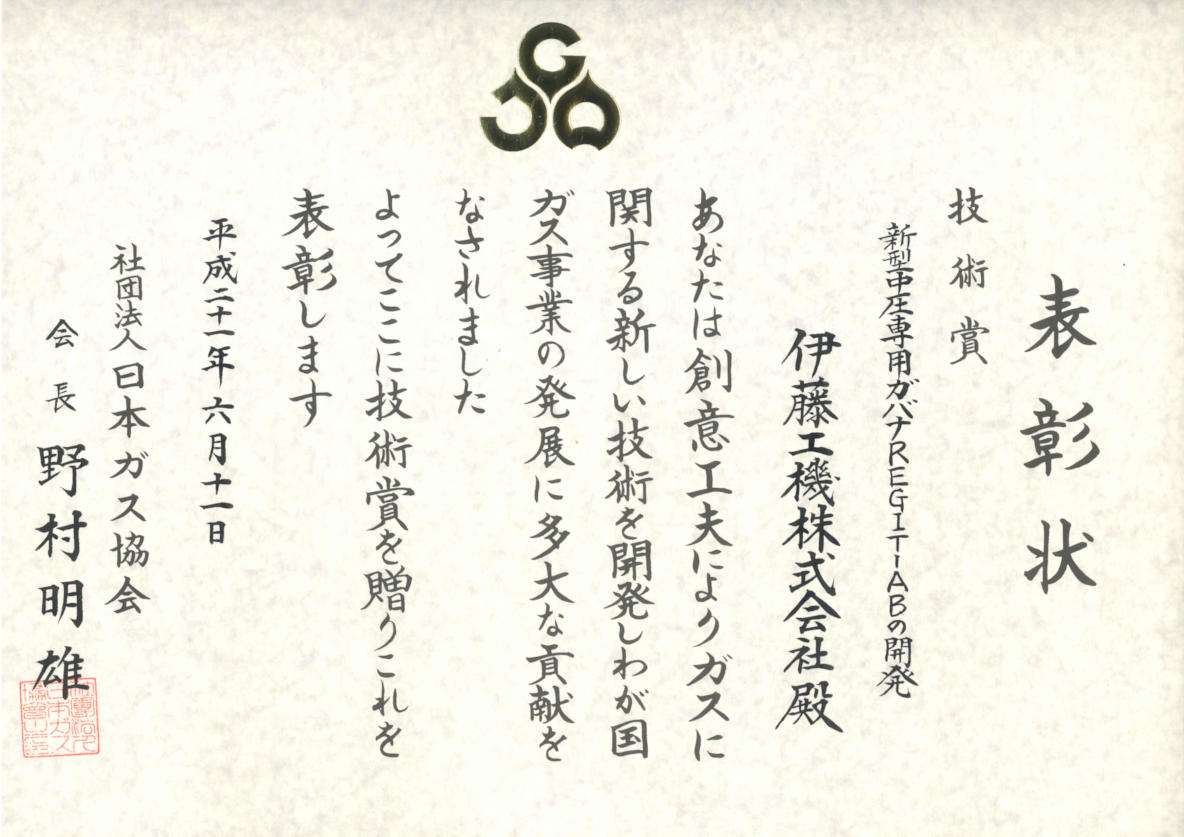 表彰状
技術賞
新型中圧専用ガバナREGIT-ABの開発
伊藤工機株式会社殿
あなたは創意工夫によりガスに
関する新しい技術を開発しわが国
ガス事業の発展に多大な貢献を
なされました
よってここに技術賞を贈りこれを
表彰します
平成二十一年六月十一日
社団法人日本ガス協会
会長 野村明雄